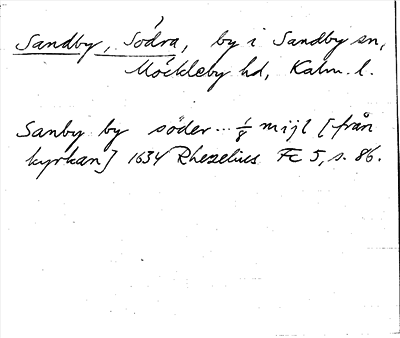 Sandby, Södra, by i Sandby sn,
Möckleby hd, Kalm. l.
Sanby by söder... 1/8 mijl [från
kyrkan] 1634 Rhezelius Fc 5, s. 86.